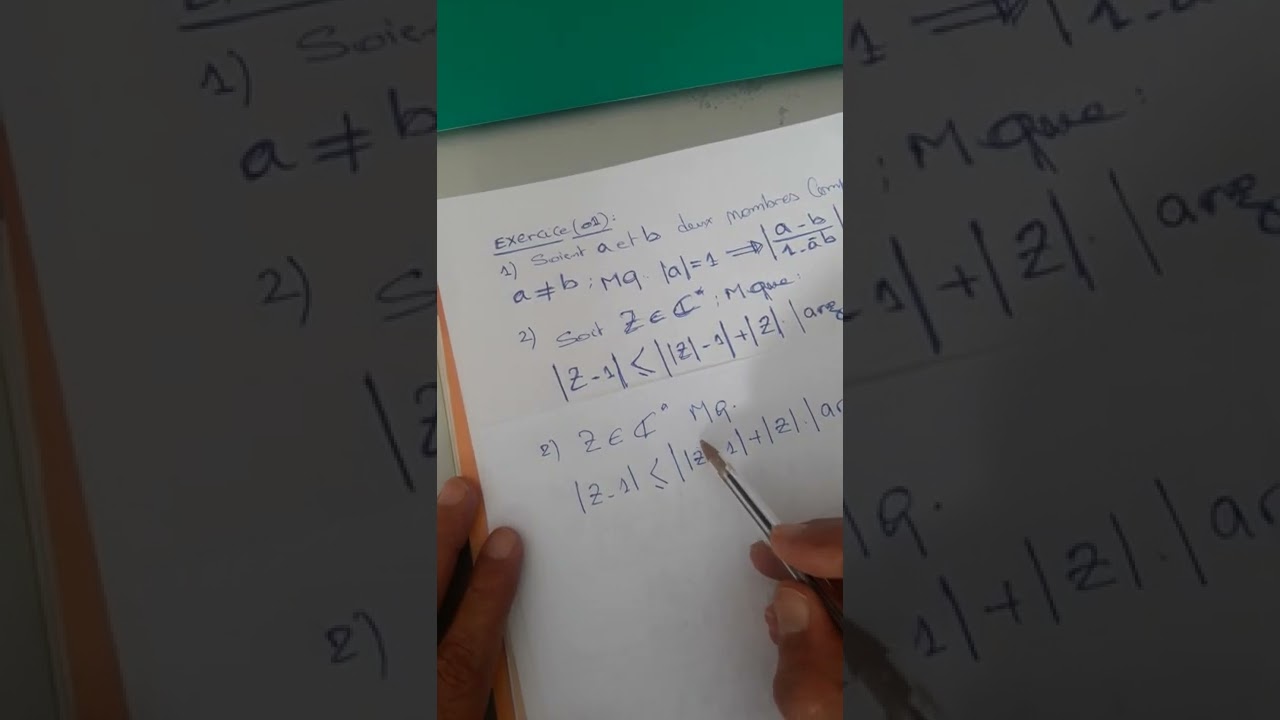 Exercice (01):
1) Soient a et b deux nombres Comp
a ≠ b ; Mq. |a| = 1 ⟹ |a - b / 1 - āb|
2) Soit Z ∈ ℂ* ; M que:
|Z - 1| ≤ ||Z| - 1| + |Z| . |arg
2) Z ∈ ℂ* Mq.
|Z - 1| ≤ ||Z| - 1| + |Z| . |ar